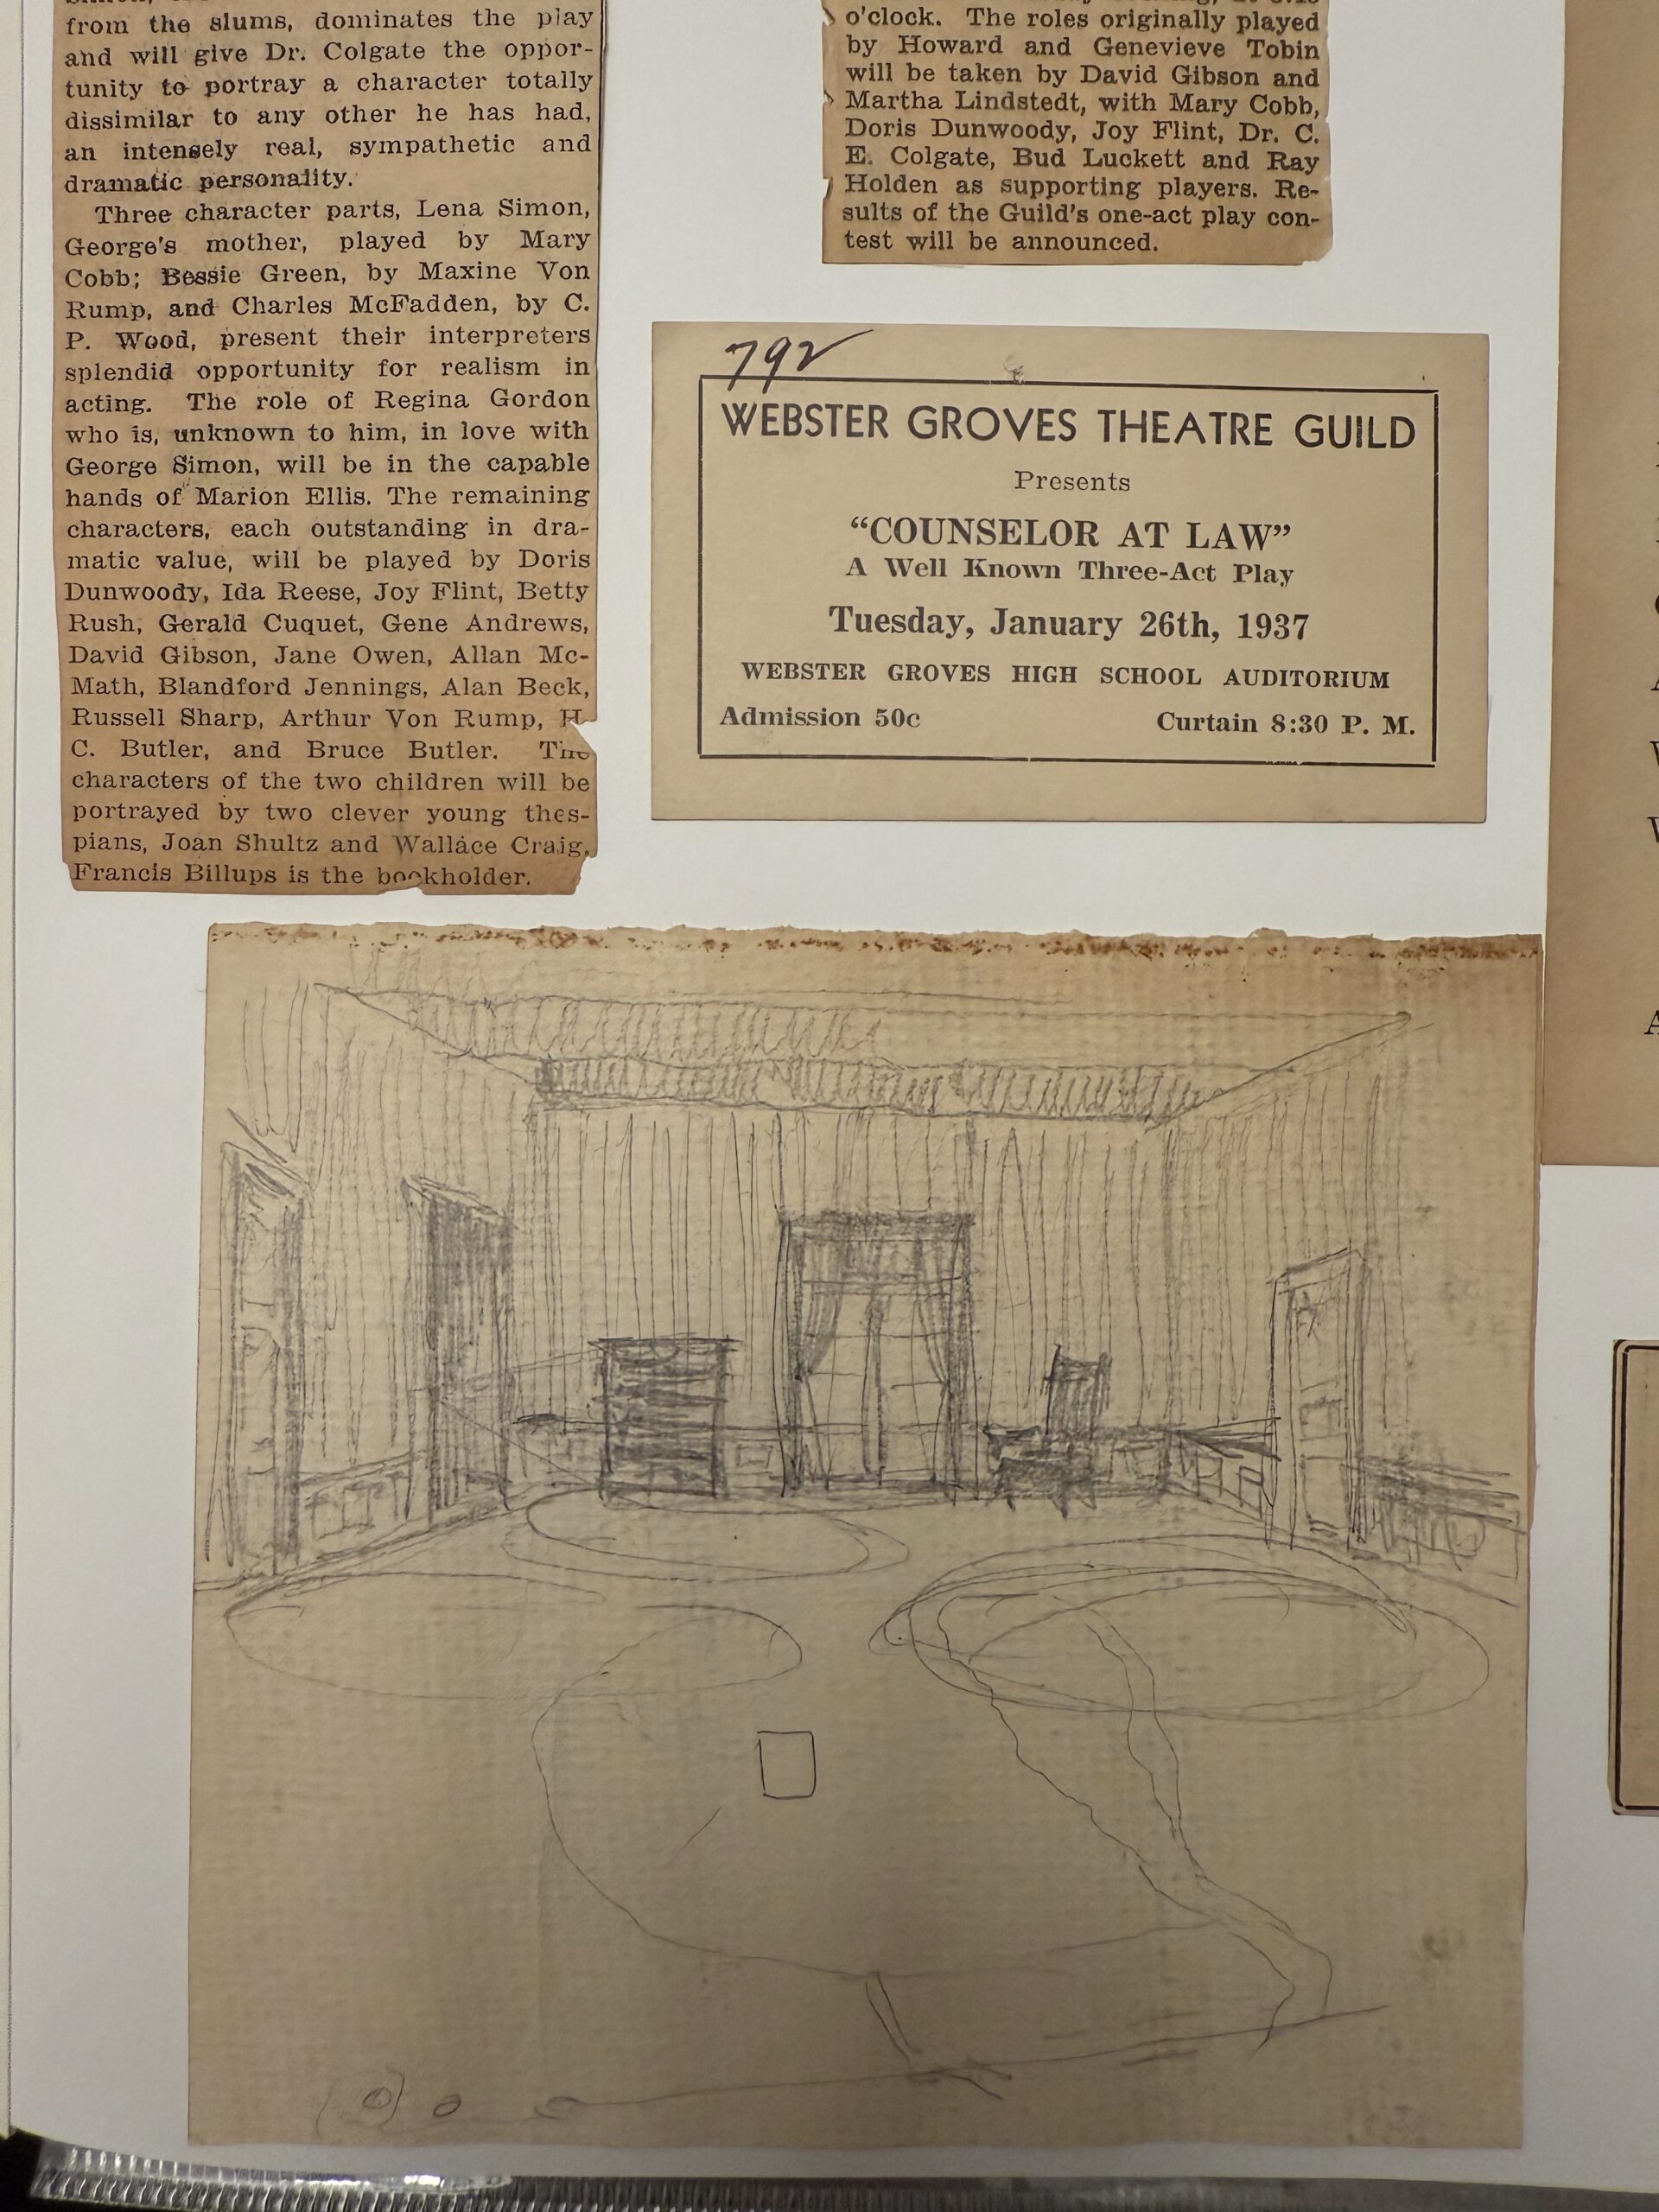 from the slums, dominates the play
and will give Dr. Colgate the oppor-
tunity to portray a character totally
dissimilar to any other he has had,
an intensely real, sympathetic and
dramatic personality.
Three character parts, Lena Simon,
George's mother, played by Mary
Cobb; Bessie Green, by Maxine Von
Rump, and Charles McFadden, by C.
P. Wood, present their interpreters
splendid opportunity for realism in
acting. The role of Regina Gordon
who is, unknown to him, in love with
George Simon, will be in the capable
hands of Marion Ellis. The remaining
characters, each outstanding in dra-
matic value, will be played by Doris
Dunwoody, Ida Reese, Joy Flint, Betty
Rush, Gerald Cuquet, Gene Andrews,
David Gibson, Jane Owen, Allan Mc-
Math, Blandford Jennings, Alan Beck,
Russell Sharp, Arthur Von Rump, H.
C. Butler, and Bruce Butler. The
characters of the two children will be
portrayed by two clever young thes-
pians, Joan Shultz and Wallace Craig.
Francis Billups is the bookholder.
o'clock. The roles originally played
by Howard and Genevieve Tobin
will be taken by David Gibson and
Martha Lindstedt, with Mary Cobb,
Doris Dunwoody, Joy Flint, Dr. C.
E. Colgate, Bud Luckett and Ray
Holden as supporting players. Re-
sults of the Guild's one-act play con-
test will be announced.
792
WEBSTER GROVES THEATRE GUILD
Presents
“COUNSELOR AT LAW”
A Well Known Three-Act Play
Tuesday, January 26th, 1937
WEBSTER GROVES HIGH SCHOOL AUDITORIUM
Admission 50c Curtain 8:30 P. M.